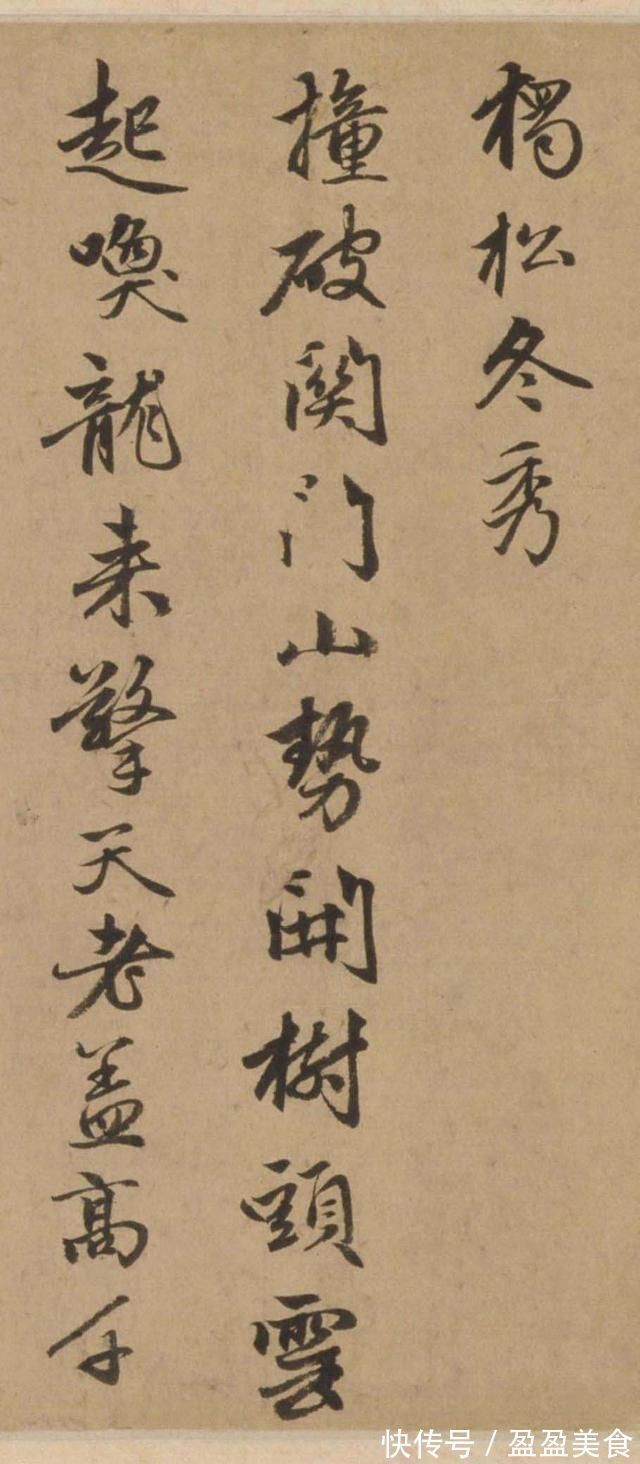 松冬秀
撞破関门山势開樹頭雲
起喚龍来擎天老盖高千
快传号／盈盈美食